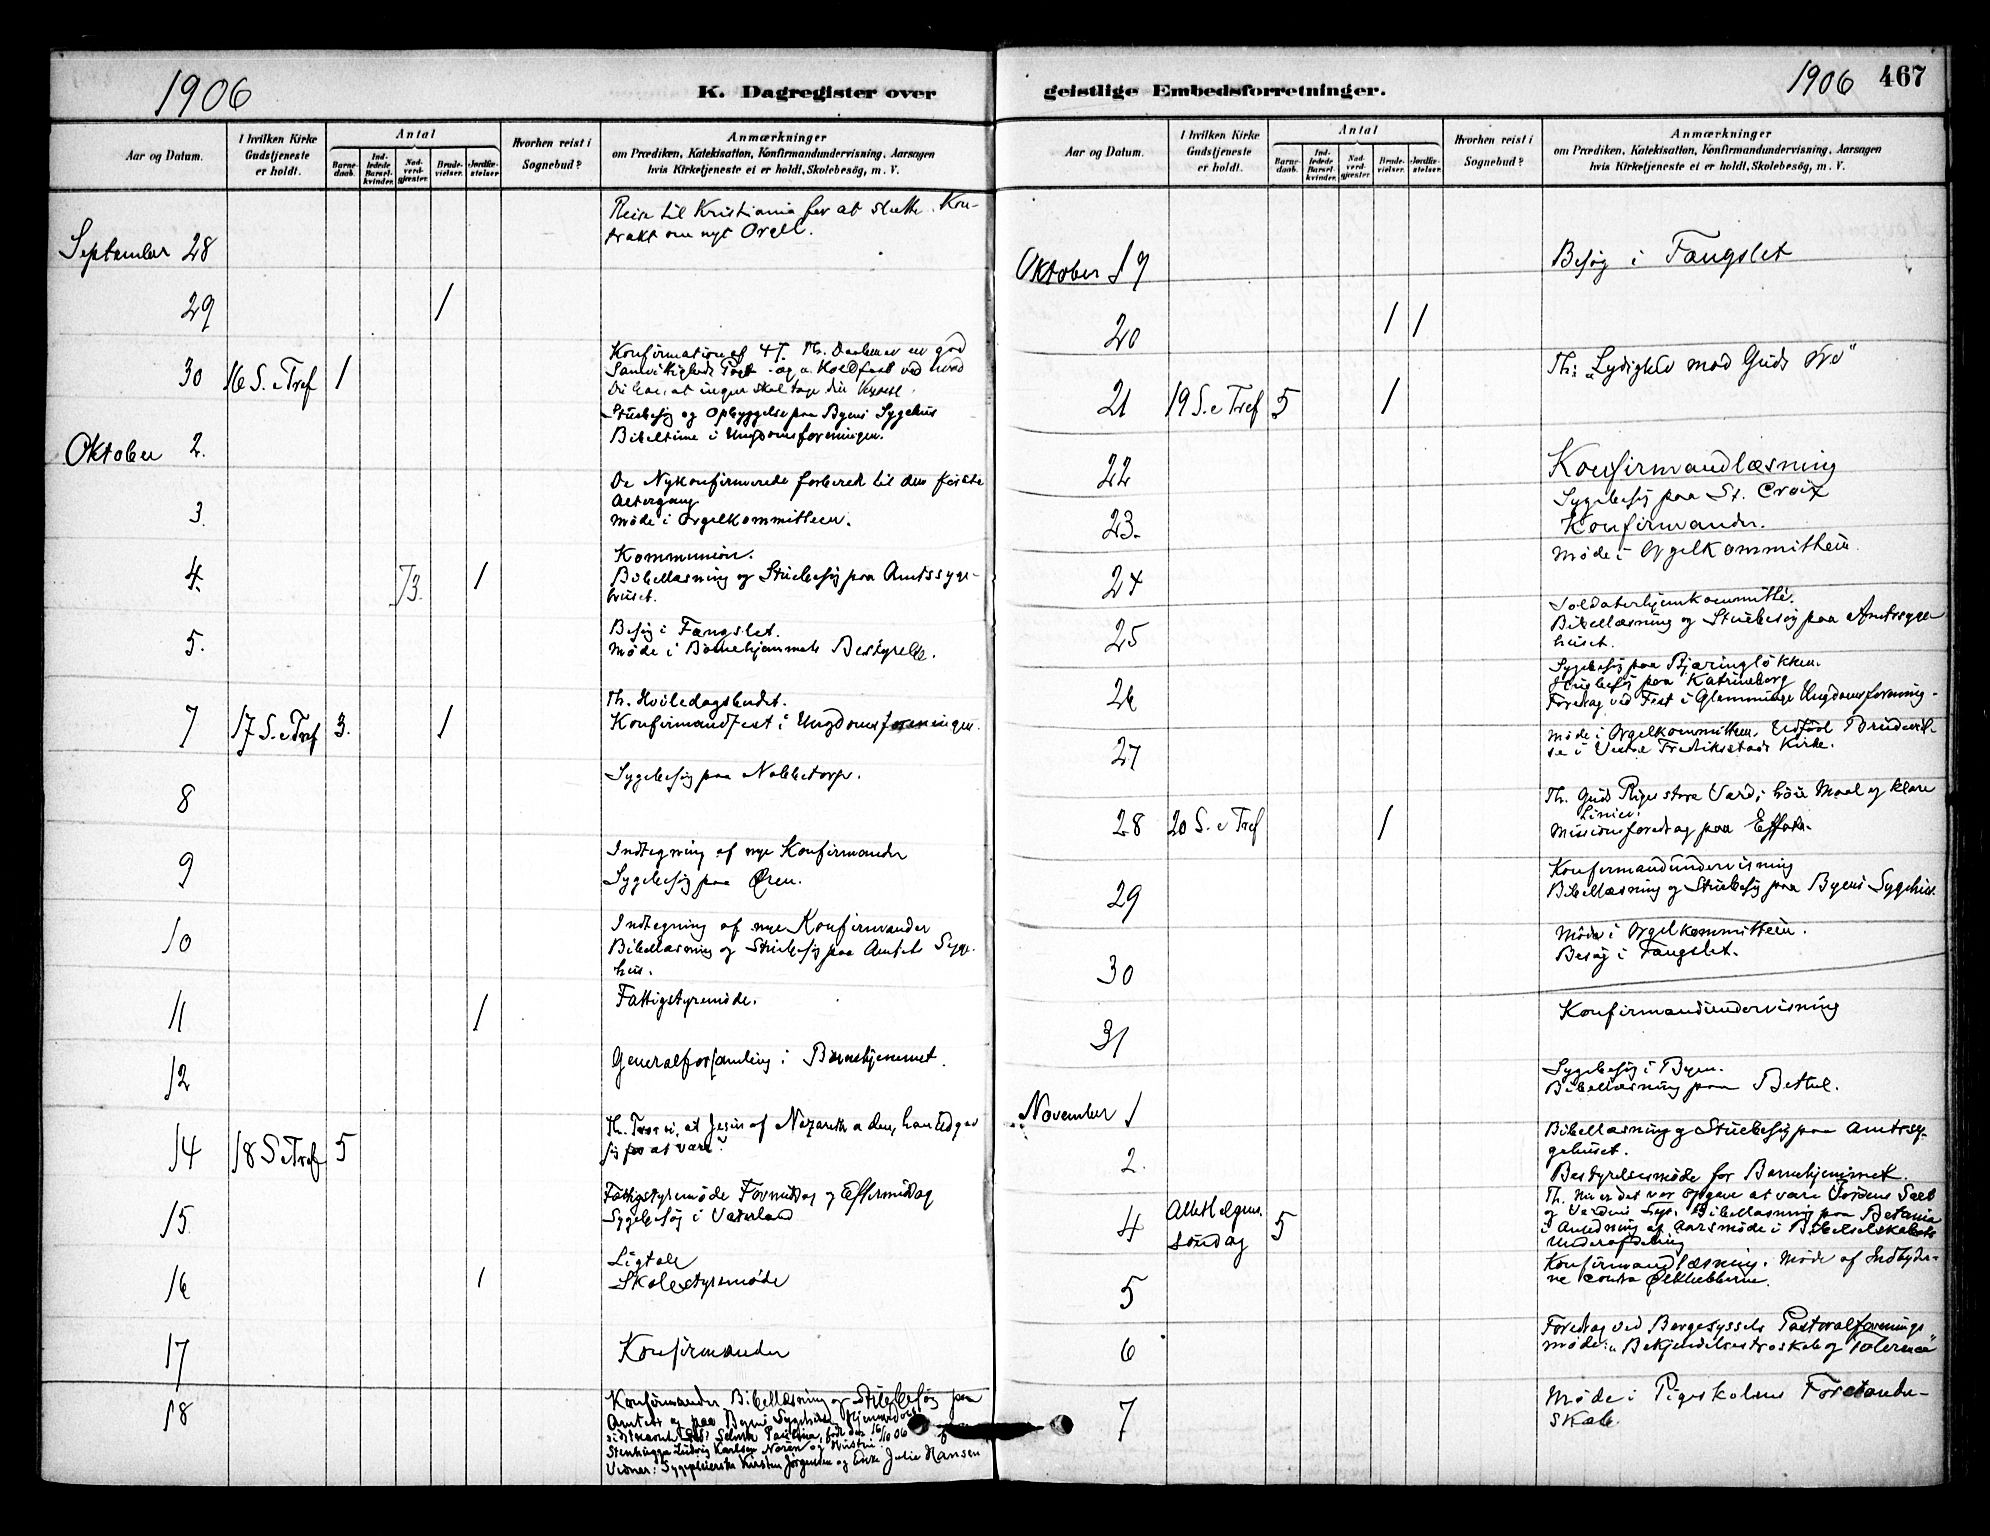 1906
K. Dagregister over
Aar og Datum.
I hvilken Kirke Gudstjeneste er holdt.
Antal
Barne-daab.
Ind-ledede Barsel-kvinder.
Nad-verd-gjester.
Brude-vielser.
Jordfæ-stelser.
Hvorhen reist i Sognebud?
Anmærkninger
om Prædiken, Katekisation, Konfirmandundervisning, Aarsagen
hvis Kirketjeneste ei er holdt, Skolebesøg, m. V.
September 28
Reise til Kristiania for at slutte Kon-
trakt om nyt Orgel.
29 1
30 16 S. e Tref 1
Konfirmation af 47. Th.
Samvittigheds
Du har, at ingen skal tage din Krone.
Stuebesøg og Opbyggelse paa Byens Sygehus
Oktober 2.
Bibeltime i Ungdomsforeningen.
3.
De Nykonfirmerede forbered til den første
Altergang
Møde i Orgelkommitteen.
4. 73. 1
Kommunion.
Bibellæsning og Stuebesøg paa Amtssyge-
huset.
5.
Besøg i Fængslet.
Møde i Børnehjemmets Bestyrelse.
7 17 S. e Tref 3. 1
Th. Hviledagsbudet.
Konfirmandfest i Ungdomsforeningen.
8
Sygebesøg paa Nabbetorp.
9
Indtegning af nye Konfirmander
Sygebesøg paa Øren.
10
Indtegning af nye Konfirmander
Bibellæsning og Stuebesøg paa Amtets Syge-
hus.
11 1
Fattigstyremøde.
12
Generalforsamling i Børnehjemmet.
14 18 S e Tref 5
Th. Tror vi, at Jesus af Nazareth er den, han udgav
sig for at være?
15
Fattigstyremøde Formiddag og Eftermiddag
Sygebesøg i Vaterland
16 1
Ligtale
Skolestyremøde
17
Konfirmander
18
Konfirmander. Bibellæsning og Stuebesøg paa
Amtets og paa Byens Sygehus. Hjemmedøbt
Selma Paulina, født den 16/10 06 af
Stenhugger Ludvig Karlsen Noren og Hustru.
Vidner: Sygepleierske Kirsten Jørgensen og Enke Julie Hansen
geistlige Embedsforretninger.
1906 467
Aar og Datum.
I hvilken Kirke Gudstjeneste er holdt.
Antal
Barne-daab.
Ind-ledede Barsel-kvinder.
Nad-verd-gjester.
Brude-vielser.
Jordfæ-stelser.
Hvorhen reist i Sognebud?
Anmærkninger
om Prædiken, Katekisation, Konfirmandundervisning, Aarsagen
hvis Kirketjeneste ei er holdt, Skolebesøg, m. V.
Oktober 19
Besøg i Fængslet
20 1 1
21 19 S. e Tref 5 1
Th: „Lydighed mod Guds Ord"
22
Konfirmandlæsning
Sygebesøg paa St. Croix
23.
Konfirmander.
Møde i Orgelkommitteen.
24
Soldaterhjemkommitté.
25
Bibellæsning og Stuebesøg paa Amtssyge-
huset.
Sygebesøg paa Bjæringløkken.
26
Stuebesøg paa Katrineborg
Foredrag ved Fest i Glemminge Ungdomsforening.
27
Møde i Orgelkommitteen. Udført Brudeviel-
se i Vestre Fredriksstads Kirke.
28 20 S. e Tref 1
Th. Guds Riges store Værd; høie Maal og klare
Linier.
Missionsforedrag paa Effata.
29
Konfirmandundervisning
Bibellæsning og Stuebesøg paa Byens Sygehus.
30
Møde i Orgelkommitteen.
Besøg i Fængslet.
31
Konfirmandundervisning
November 1
Sygebesøg i Byen.
Bibellæsning paa Bethel.
2.
Bibellæsning og Stuebesøg paa Amtssy-
gehuset.
Bestyrelsesmøde for Børnehjemmet.
4 Allehelgens
søndag 5
Th. Her er det vor Opgave at være Jordens Salt
og Verdens Lys. Bibellæsning paa Betania
i Anledning af Aarsmøde i Bibelselskabets
Underafdeling
5
Konfirmandlæsning. Møde af Indbyder-
ne contra Ølklubberne.
6
Foredrag ved Borgesyssels Pastoralforenings
møde: „Bekjendelsestroskab og Tolerance"
7
Møde i Pigeskolens Forstander-
skab.